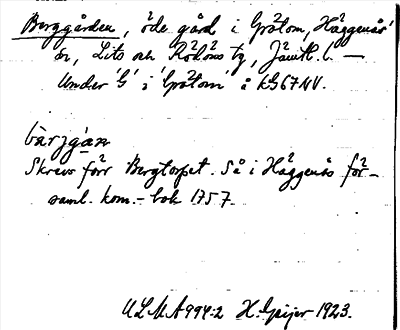 Berggården, öde gård i Gråtom, Häggenås'
sn, Lits och Rödöns tg, Jämtl. l. —
Under 'G' i 'Gråtom' å kG67NV.
bàrjgan
Skrevs förr Bergtorpet. Så i Häggenås för-
saml. kom.-bok 1757.
ULMA 994:2 H. Geijer 1923.